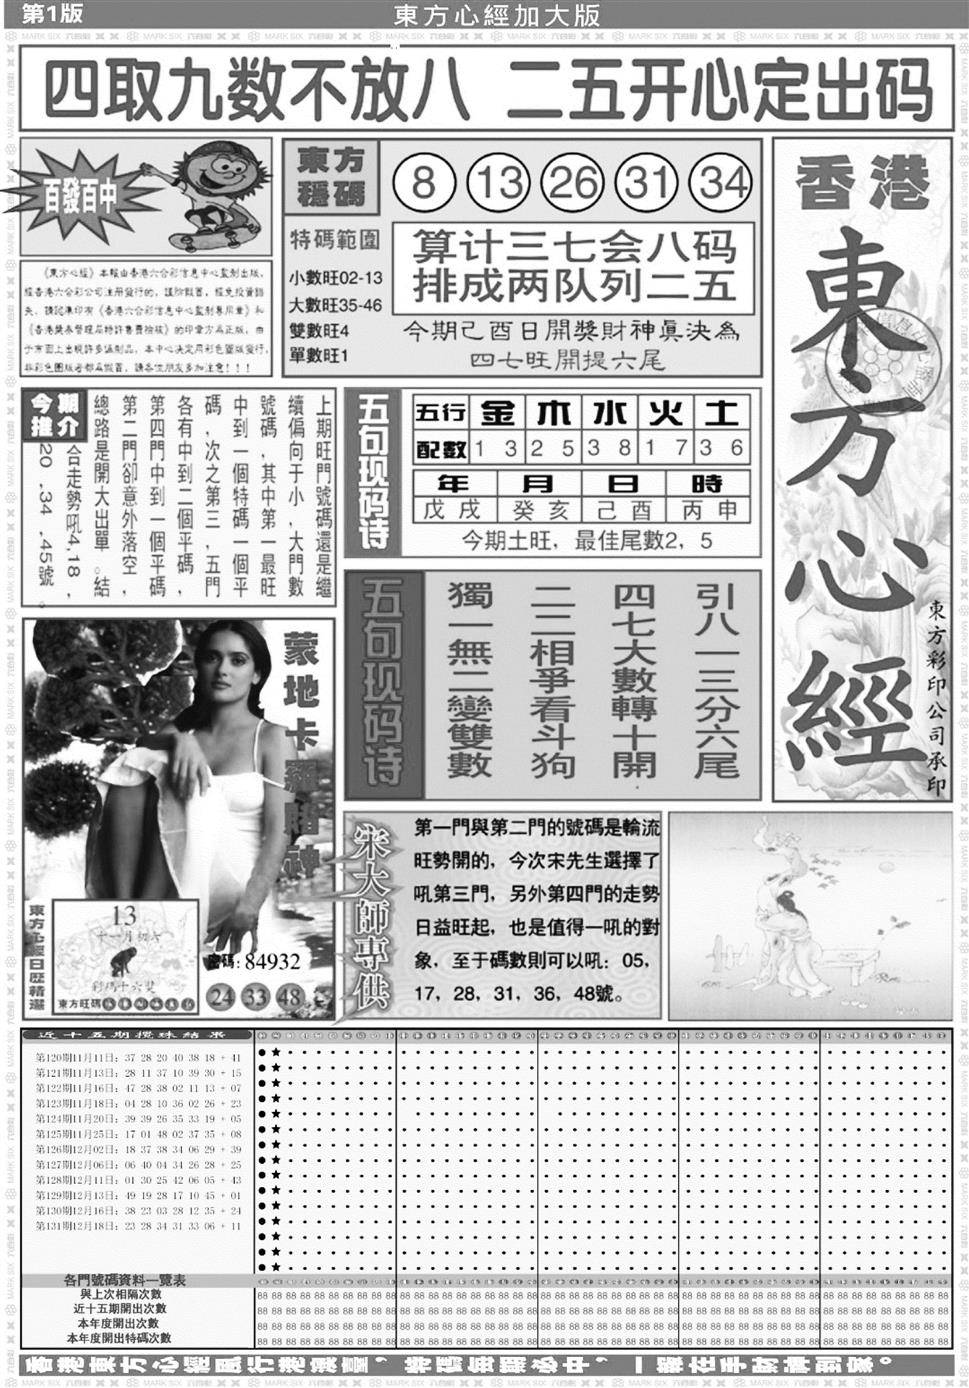 第1版
東方心經加大版
四取九数不放八 二五开心定出码
百發百中
《東方心經》本報由香港六合彩信息中心監制出版，
經香港六合彩公司注册發行的，
《香港獎券管理局特許售賣檢核》的印章方爲正版，由
于市面上出現許多
本中心决定用彩色圖版發行，
非彩色圖版者都爲假冒，請各位朋友多加注意！！！
東方
穩碼
8 13 26 31 34
特碼範圍
小數旺02-13
大數旺35-46
雙數旺4
單數旺1
算计三七会八码
排成两队列二五
今期己酉日開獎財神眞决為
四七旺開提六尾
香港
東方心經
東方彩印公司承印
今期
推介
上期旺門號碼還是繼
續偏向于小，大門數
號碼，其中第一最旺
中到一個特碼一個平
碼，次之第三，五門
各有中到二個平碼，
第四門中到一個平碼，
第二門卻意外落空，
總路是開大出單。結
合走勢吼4,18,
20,34,45號。
五句现码诗
五行 金 木 水 火 土
配數 1 3 2 5 3 8 1 7 3 6
年 月 日 時
戊戌 癸亥 己酉 丙申
今期土旺，最佳尾數2，5
五句现码诗
引八一三分六尾
四七大數轉十開
二二相爭看斗狗
獨一無二變雙數
蒙地卡羅賭神
13
十一月初六
東方心經日歷精選
東方旺碼
密碼: 84932
24 33 48
宋大師專供
第一門與第二門的號碼是輪流
旺勢開的，今次宋先生選擇了
吼第三門，另外第四門的走勢
日益旺起，也是值得一吼的對
象，至于碼數則可以吼：05，
17，28，31，36，48號。
近十五期攪珠結果
第120期11月11日: 37 28 20 40 38 18 + 41
第121期11月13日: 28 11 37 10 39 30 + 15
第122期11月16日: 47 28 38 02 11 13 + 07
第123期11月18日: 04 28 10 36 02 26 + 23
第124期11月20日: 39 39 26 35 33 19 + 05
第125期11月25日: 17 01 48 02 37 35 + 08
第126期12月02日: 18 37 38 34 06 29 + 39
第127期12月06日: 06 40 04 34 26 28 + 25
第128期12月11日: 01 30 25 42 06 05 + 43
第129期12月13日: 49 19 28 17 10 45 + 01
第130期12月16日: 38 23 03 28 12 35 + 24
第131期12月18日: 23 28 34 31 33 06 + 11
各門號碼資料一覽表
與上次相隔次數
近十五期開出次數
本年度開出次數
本年度開出特碼次數
香港東方心經風行港澳臺，特碼每期必中，一報在手財神到家。